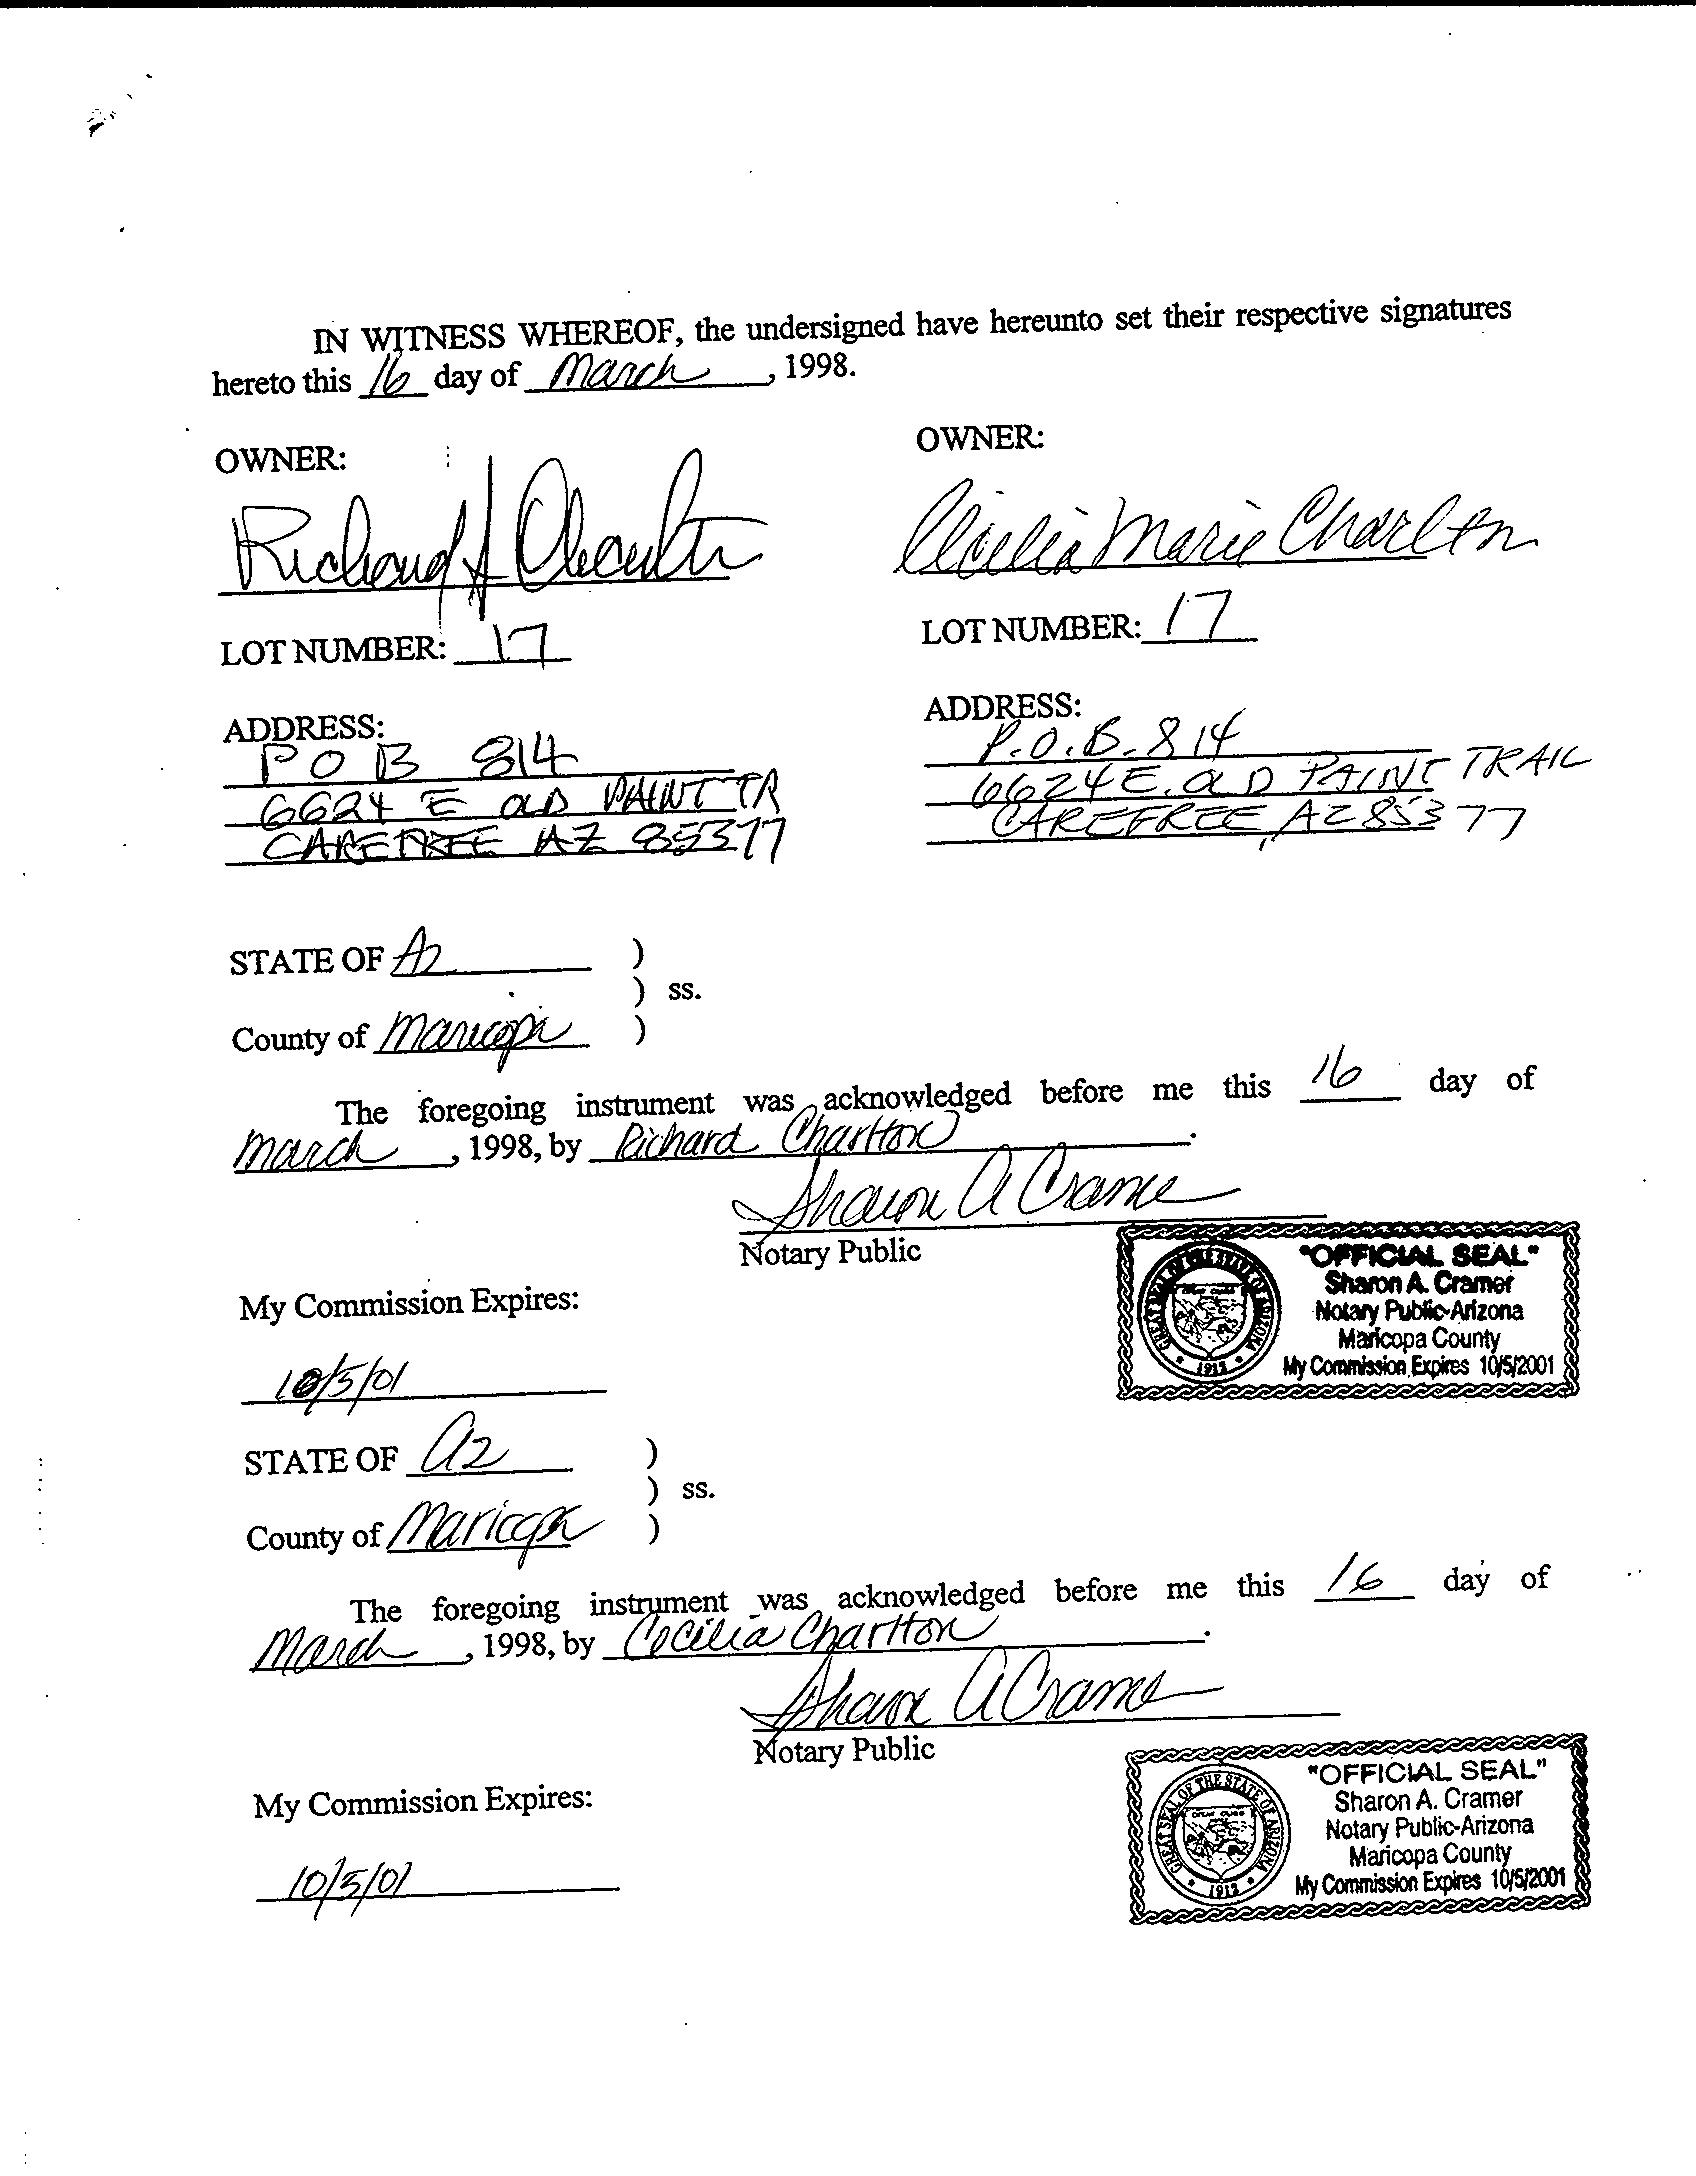 IN WITNESS WHEREOF, the undersigned have hereunto set their respective signatures
hereto this 16 day of March, 1998.
OWNER:
OWNER:
Richard
Cecilia Marie Charlton
LOT NUMBER: 17
LOT NUMBER: 17
ADDRESS:
P O B 814
6624 E OLD PAINT TR
CAREFREE AZ 85377
ADDRESS:
P.O.B. 814
6624 E. OLD PAINT TRAIL
CAREFREE, AZ 85377
STATE OF AZ )
) ss.
County of Maricopa )
The foregoing instrument was acknowledged before me this 16 day of
March, 1998, by Richard Charlton.
Sharon A Cramer
Notary Public
"OFFICIAL SEAL"
Sharon A. Cramer
Notary Public-Arizona
Maricopa County
My Commission Expires 10/5/2001
GREAT SEAL OF THE STATE OF ARIZONA
1912
My Commission Expires:
10/5/01
STATE OF AZ )
) ss.
County of Maricopa )
The foregoing instrument was acknowledged before me this 16 day of
March, 1998, by Cecilia Charlton.
Sharon A Cramer
Notary Public
"OFFICIAL SEAL"
Sharon A. Cramer
Notary Public-Arizona
Maricopa County
My Commission Expires 10/5/2001
GREAT SEAL OF THE STATE OF ARIZONA
1912
My Commission Expires:
10/5/01